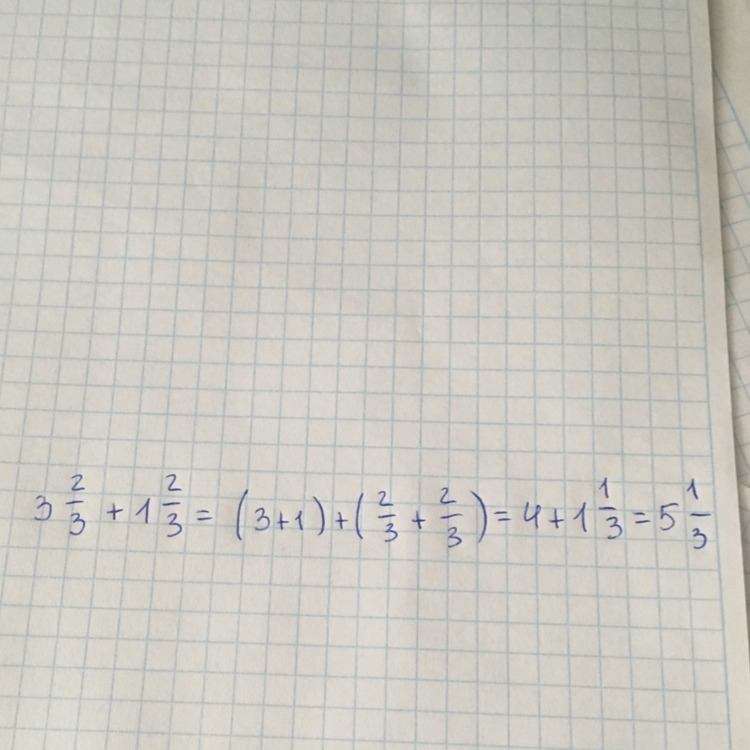 3 2/3 + 1 2/3 = (3+1)+(2/3 + 2/3) = 4+1 1/3 = 5 1/3